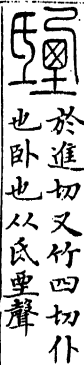 𦥎
於進切又竹四切仆
也臥也从氐垔聲